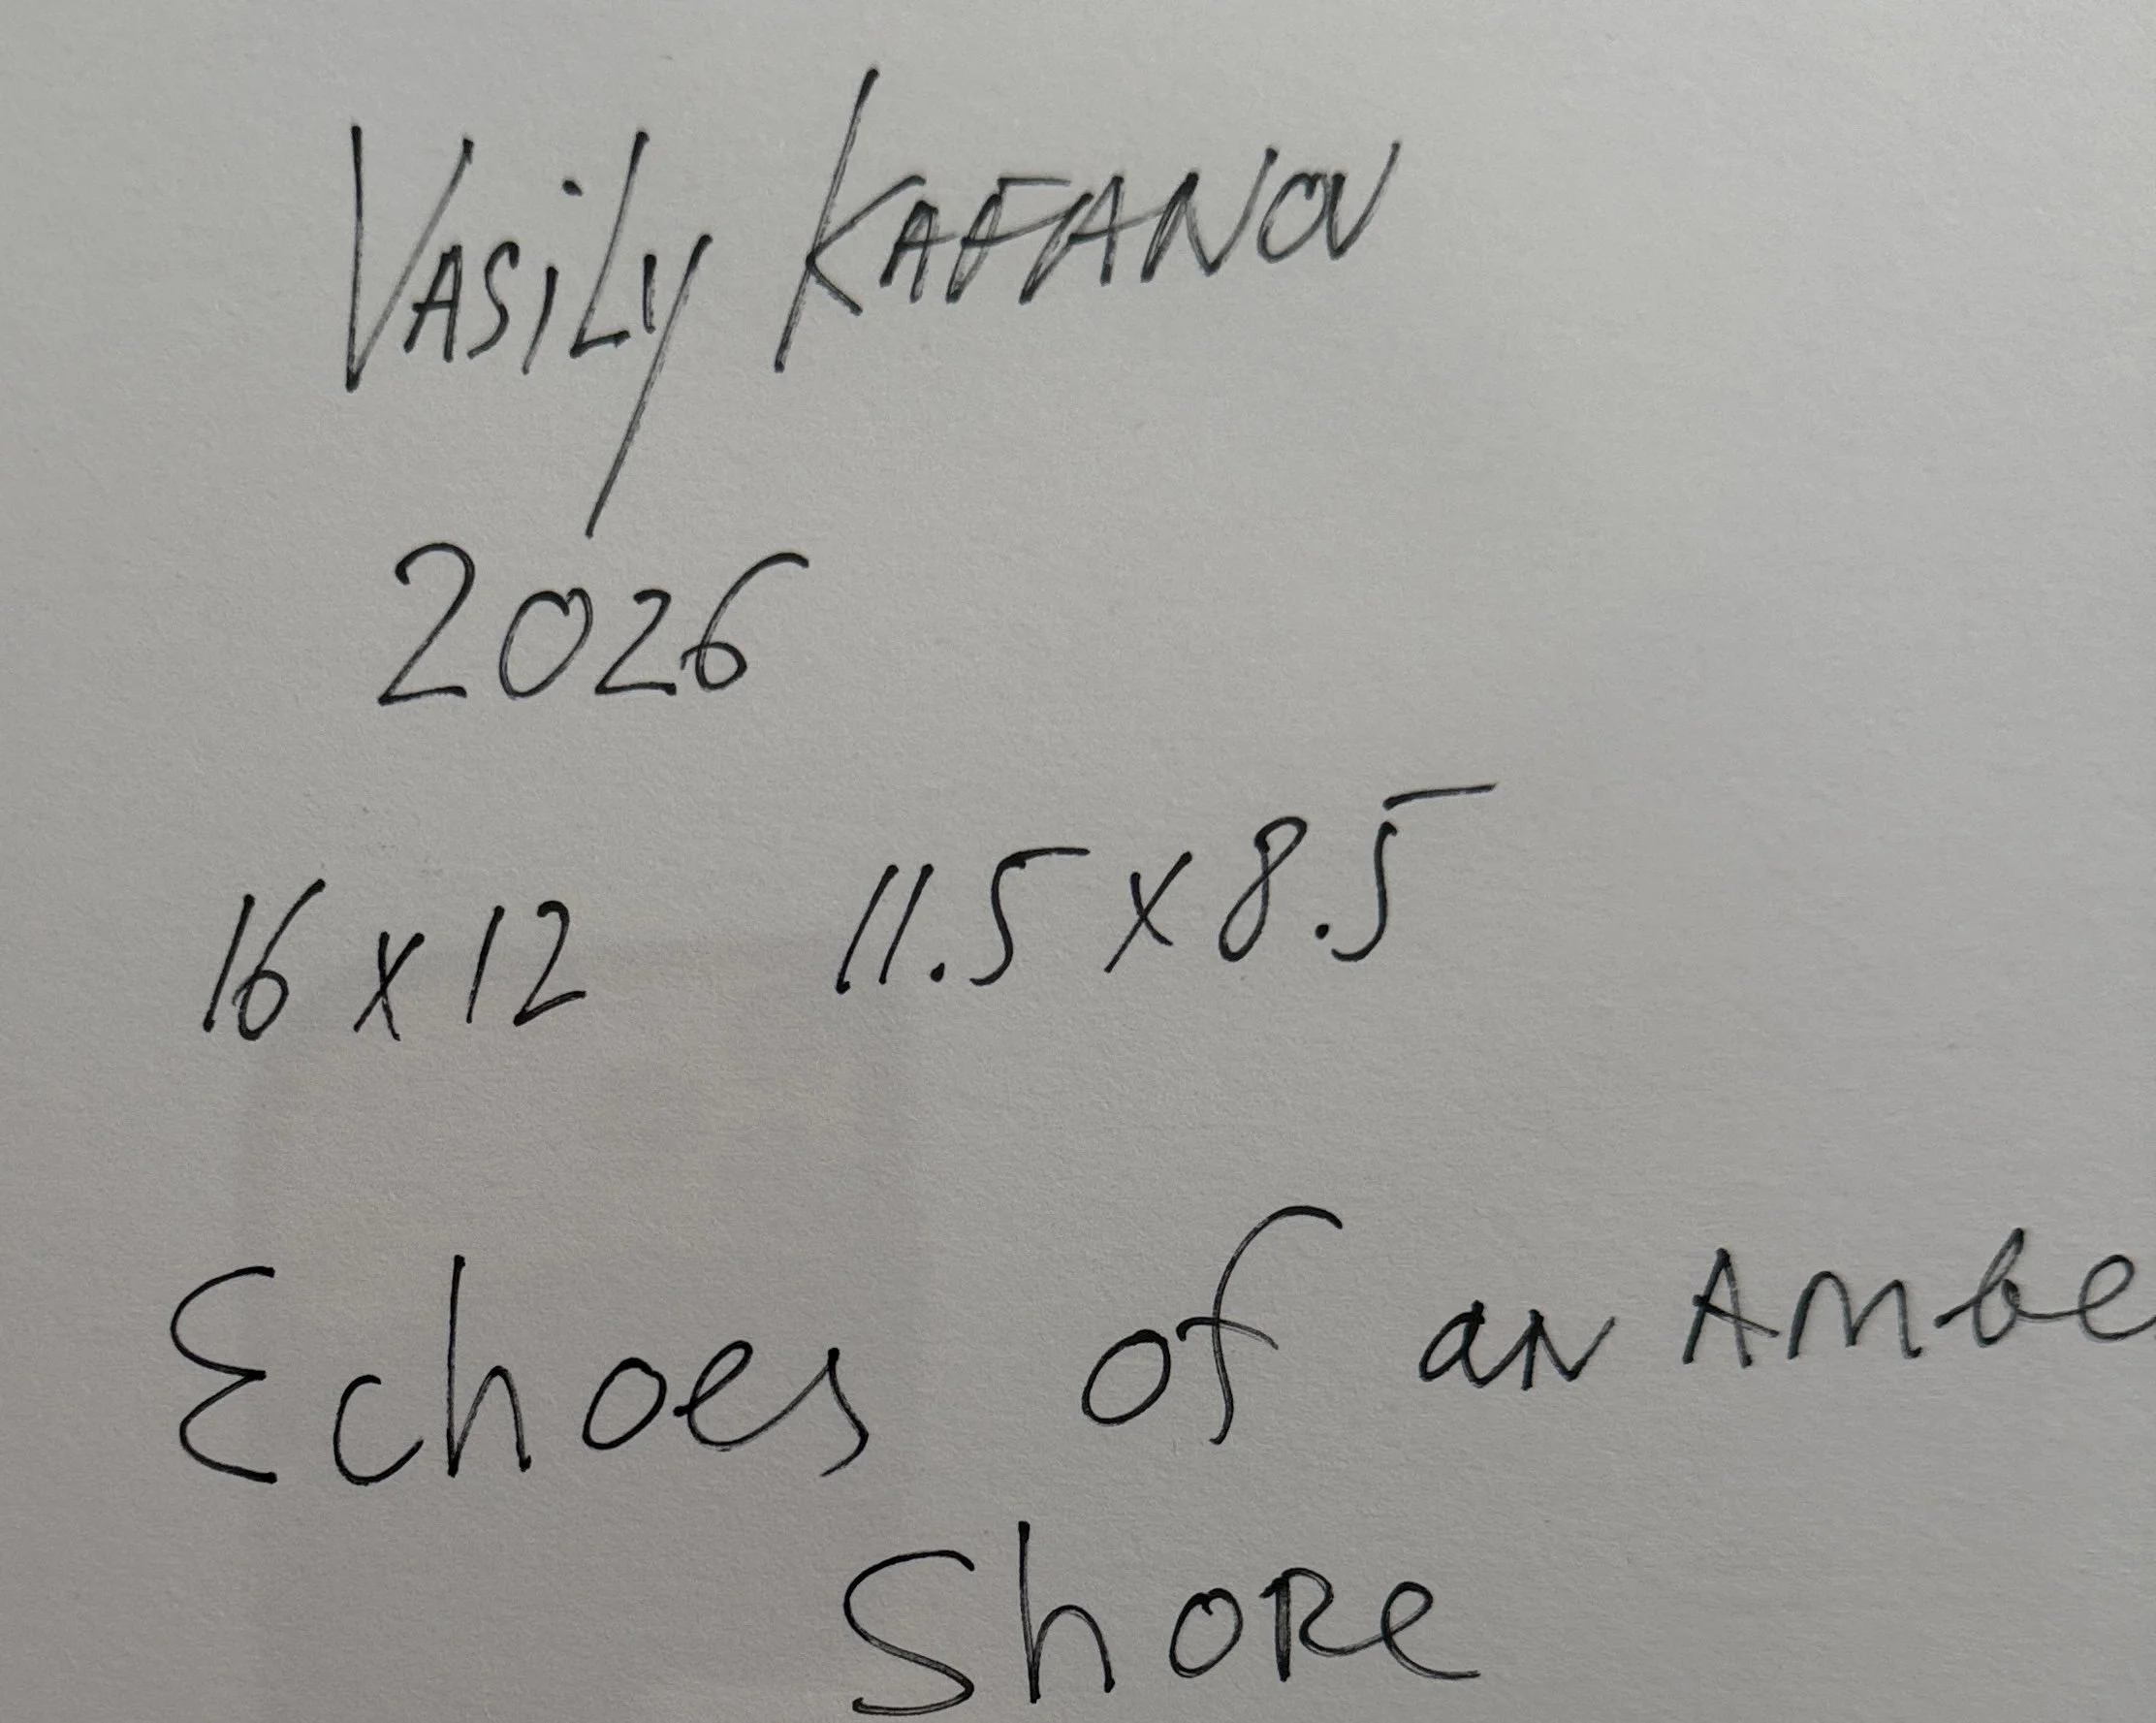 Vasily Kafanov
2026
16 x 12 11.5 x 8.5
Echoes of an Ambe
Shore